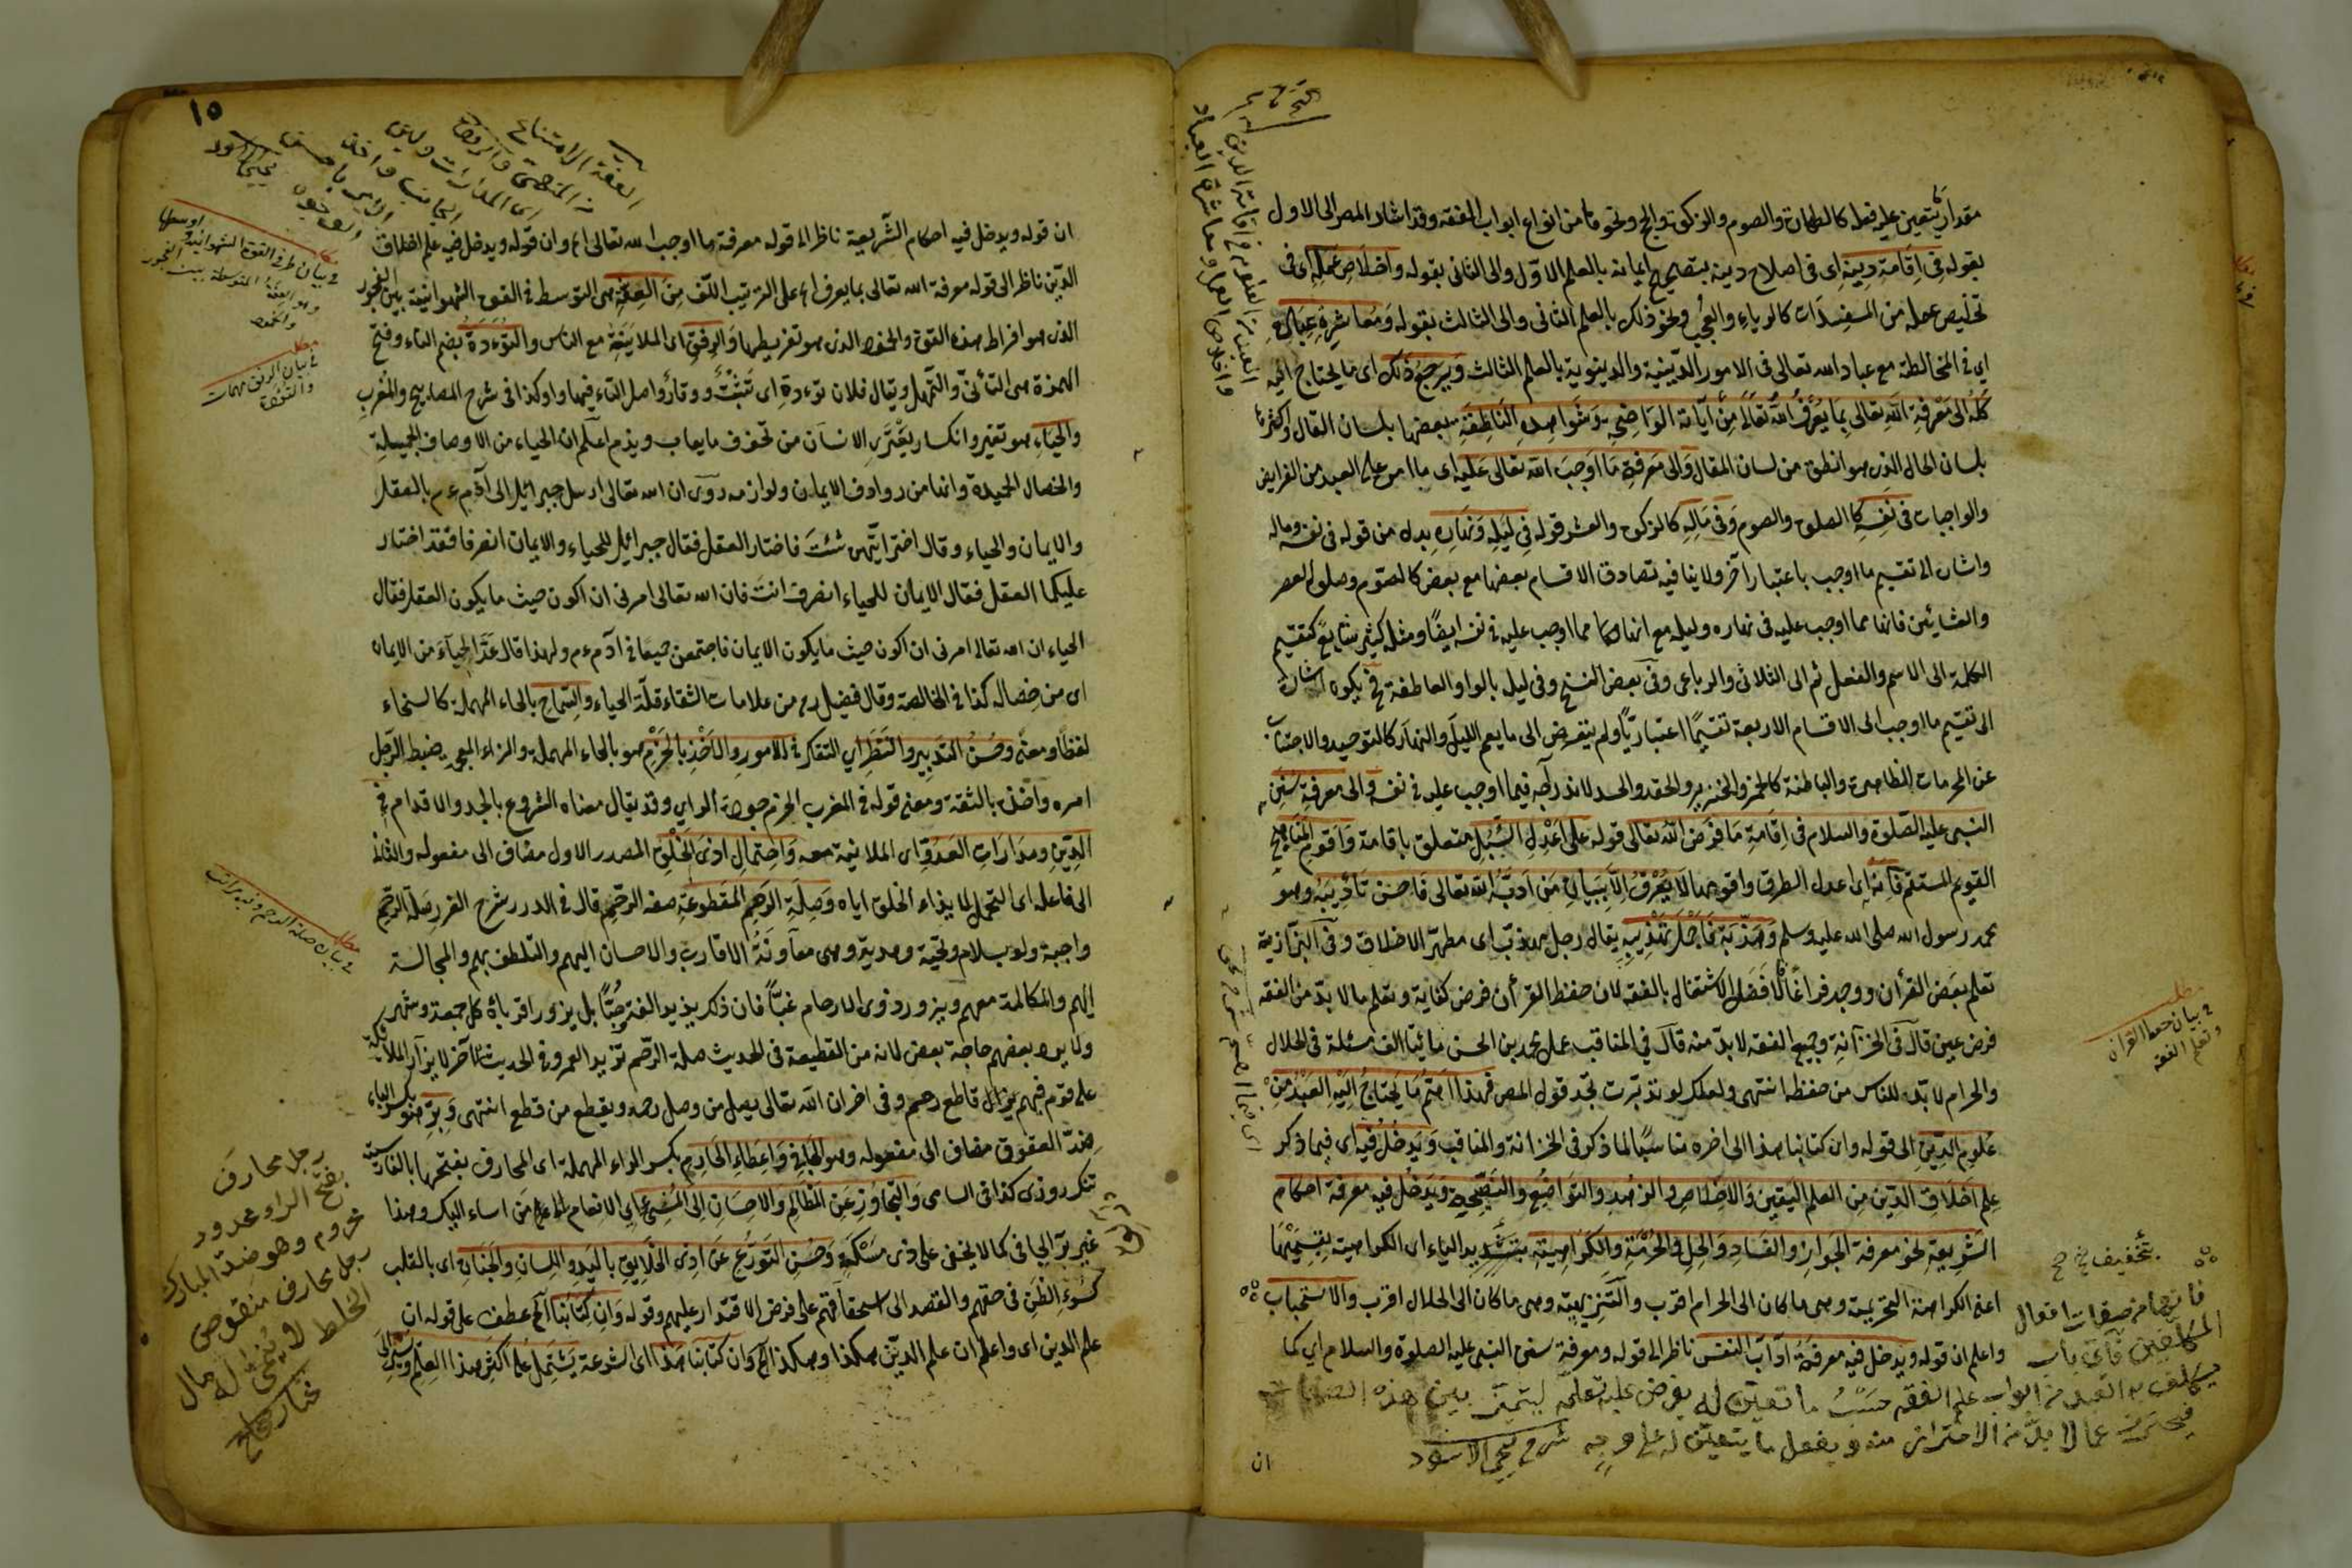 مقدار يتعين عليه فعله كالطهارة والصوم والزكوة والحج ونحوها من انواع ابواب الفقه وقد اشار المصر الى الاول
بقوله فى اقامة دينه اى فى اصلاح دينه بتصحيح ايمانه بالعلم الاول والى الثانى بقوله واخلاص عمله اى فى
تخليص عمله من المفسدات كالرياء والعجب ونحو ذلك بالعلم الثانى والى الثالث بقوله ومعاشرة عباده
اي فى المخالطة مع عباد الله تعالى فى الامور الدينية والدنيوية بالعلم الثالث ويرجع ذلك اى ما يحتاج اليه
كله الى معرفة الله تعالى بما يعرف الله تعالى من آياته الواضحة وشواهده الناطقة بعضها بلسان القال واكثرها
بلسان الحال الذى هو انطق من لسان المقال والى معرفة ما اوجب الله تعالى عليه اى ما امر على العبد من الفرايض
والواجبات فى نفسه كالصلوة والصوم وفى ماله كالزكوة والعشر قوله فى ليله ونهاره بدل من قوله فى نفسه وماله
واشارة الى تقسيم ما اوجب باعتبار آخر ولا ينافيه تصادق الاقسام بعضها مع بعض كالصوم وصلوة العصر
والعشائين فانها مما اوجب عليه فى نهاره وليله مع انها مما اوجب عليه فى نفسه ايضًا ومثله كثير شايع كتقسيم
الكلمة الى الاسم والفعل ثم الى الثلاثى والرباعى وفى بعض النسخ وفى ليله بالواو العاطفة فح يكون اشارة
الى تقسيم ما اوجب الى الاقسام الاربعة تقسيمًا اعتباريًا ولم يتعرض الى ما يعم الليل والنهار كالتوحيد والاجتناب
عن المحرمات الظاهرة والباطنة كالخمر والخنزير والحقد والحسد لاندراجه فيما اوجب عليه فى نفسه والى معرفة سنن
النبى عليه الصلوة والسلام فى اقامة ما فرض الله تعالى قوله على اعدل السبل متعلق باقامة واقوم المناهج
القويم المستقيم فانه اى اعدل الطرق واقومها لا يعرف الا ببيان من ادبه الله تعالى فاحسن تأديبه وهو
محمد رسول الله صلى الله عليه وسلم وهذبه فاجمل تهذيبه يقال رجل مهذب اى مطهر الاخلاق وفى البزازية
تعلم بعض القرأن ووجد فراغًا فالافضل الاشتغال بالفقه لان حفظ القرأن فرض كفاية وتعلم ما لا بد من الفقه
فرض عين قال فى الخزانة وجميع الفقه لا بد منه قال فى المناقب عمل محمد بن الحسن مائتا الف مسئلة فى الحلال
والحرام لا بد للناس من حفظها انتهى ولعلك لو تدبرت تجد قول المصر فهذا اهم ما يحتاج اليه العبد من
علوم الدين الى قوله وان كتابنا هذا الى اخره مناسبًا لما ذكر فى الخزانة والمناقب ويدخل فيه اى فيما ذكر
علم اخلاق الدين من العلم اليقين والاخلاص والزهد والتواضع والنصيحة ويدخل فيه معرفة احكام
الشريعة نحو معرفة الجواز والفساد والحل والحرمة والكراهية بتشديد الياء اى الكراهية بقسميها
اعنى الكراهة التحريمية وهى ما كان الى الحرام اقرب والتنزيهية وهى ما كان الى الحلال اقرب والاستحباب
واعلم ان قوله ويدخل فيه معرفة آداب النفس ناظر الى قوله ومعرفة سنن النبى عليه الصلوة والسلام اي كما
ان
مطلب
فى بيان حفظ القرآن
وتعلم الفقه
بتخفيف صح
فانها من صفات افعال
المكلفين
عما لا بد من الاحتراز منه ويفعل ما يتعين له على وجه شرح يحيى الاسود
١٥
ان قوله ويدخل فيه احكام الشريعة ناظر الى قوله معرفة ما اوجب الله تعالى اه وان قوله ويدخل فيه علم اخلاق
الدين ناظر الى قوله معرفة الله تعالى بما يعرف اه على الترتيب اللف من العفة هى التوسط فى القوة الشهوانية بين الفجور
الذى هو افراط هذه القوة والخمود الذى هو تفريطها والرفق اى الملاينة مع الناس والتؤدة بضم التاء وفتح
الهمزة هى التأنى والتمهل ويقال فلان تؤدة اى تثبت ووقار واصل التاء فيها واو كذا فى شرح المصابيح والمغرب
والحياء هو تغير وانكسار يعترى الانسان من تخوف ما يعاب ويذم اعلم ان الحياء من الاوصاف الجميلة
والخصال الحميدة وانها من روادف الايمان ولوازمه روى ان الله تعالى ارسل جبرائيل الى آدم ع م بالعقل
والايمان والحياء وقال اختر ايتهن شئت فاختار العقل فقال جبرائيل للحياء والايمان انصرفا فقد اختار
عليكما العقل فقال الايمان للحياء انصرف انت فان الله تعالى امرنى ان اكون حيث ما يكون العقل فقال
الحياء ان الله تعالى امرنى ان اكون حيث ما يكون الايمان فاجتمعن جميعًا فى آدم ع م ولهذا قال عد الحياء من الايمان
اى من خصاله كذا فى الخالصة وقال فضيل رح من علامات الشقاء قلة الحياء والسماح بالحاء المهملة كالسخاء
لفظا ومعنى وحسن التدبير والنظر اي التفكر فى الامور والاخذ بالحزم هو بالحاء المهملة والزاء المعجمة ضبط الرجل
امره واخذه بالثقة ومعنى قوله فى المغرب الحزم جودة الراي وقد يقال معناه الشروع بالجد والاقدام فى
الدين ومدارات العدو اى الملاينة معه واحتمال اذى الخلق المصدر الاول مضاف الى مفعوله والثانى
الى فاعله اى التحمل لايذاء الخلق اياه وصلة الرحم المقطوعة صفة الرحم قال فى الدرر شرح الغرر صلة الرحم
واجبة ولو بسلام وتحية وهدية وهى معاونة الاقارب والاحسان اليهم والتلطف بهم والمجالسة
اليهم والمكالمة معهم ويزور ذوى الارحام غبًا فان ذلك يزيد الفة وحبًا بل يزور اقرباءه كل جمعة وشهر
ولا يرد بعضهم حاجة بعض لانه من القطيعة فى الحديث صلة الرحم تزيد العمر وفى الحديث الآخر لا ينزل الملائكة
على قوم فيهم قاطع رحم وفى اخر ان الله تعالى يصل من وصل رحمه ويقطع من قطع انتهى وبر هو بكسر الباء
ضد العقوق مضاف الى مفعوله وهو الجافى واعطاء الحارم بكسر الراء المهملة اى المحارف بفتحها بالفارسية
تنكروزى كذا فى السامى والتجاوز عن المظالم والاحسان الى المسئ اي الانعام الى من اساء اليك وهذا
غير بر الجافى كما لا يخفى على ذى مسكة وحسن التورع عن اذى الخلايق باليد واللسان والجنان اى بالقلب
كسوء الظن فى حقهم والقصد الى استحقاقهم على فرض الاقتدار عليهم وقوله وان كتابنا الخ عطف على قوله ان
علم الدين اى واعلم ان علم الدين هكذا وهكذا الخ وان كتابنا هذا اى الشرعة يشتمل على اكثر هذا العلم
مطلب
فى بيان طرفى القوة الشهوانية
وهو العفة المتوسطة بين الفجور
والخمود
مطلب
فى بيان الرفق
والتؤدة
مطلب
فى بيان صلة الرحم
رجل محارف
بفتح الراء محدود
محروم وهو ضد المبارك
رجل محارف منقوص
الحظ لا ينمى له مال
مختار صحاح